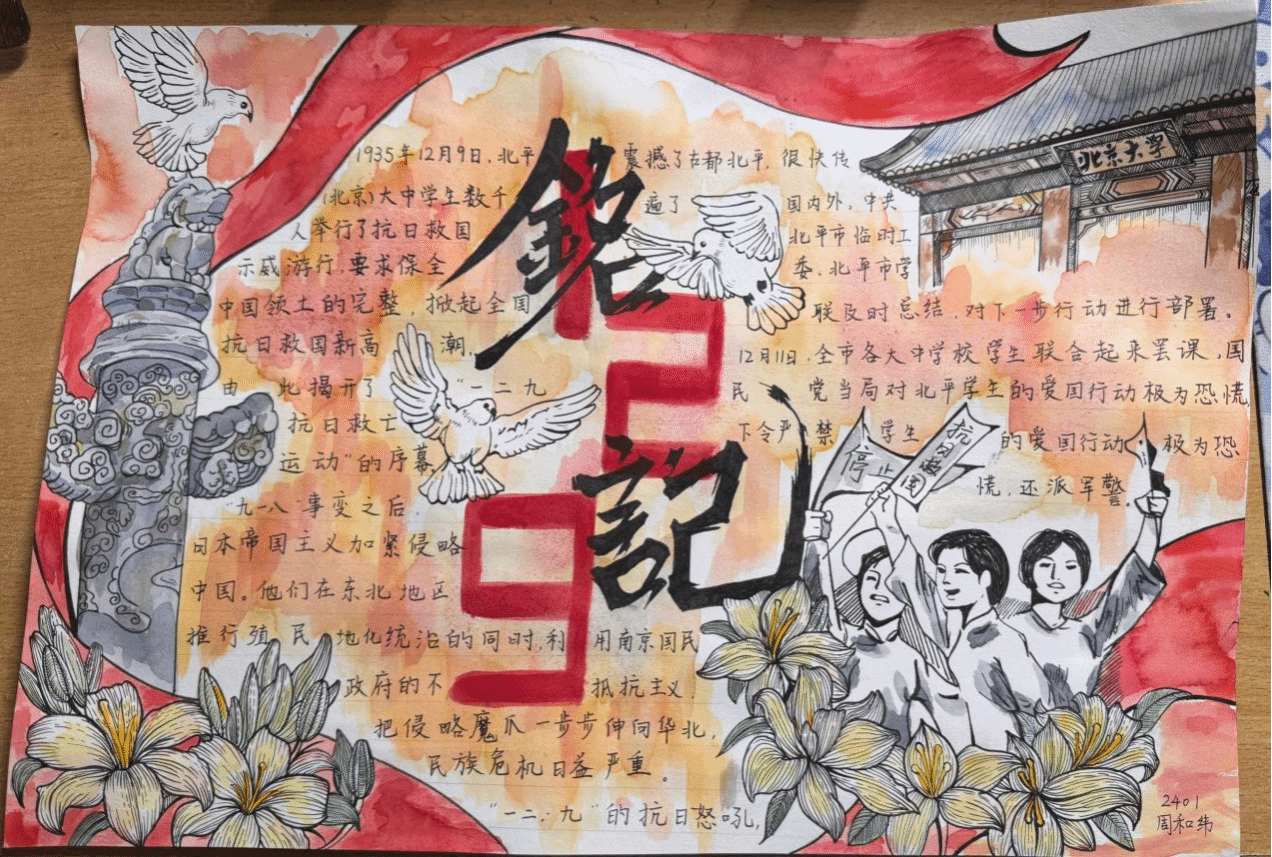 铭记
129
1935年12月9日，北平
(北京)大中学生数千
人举行了抗日救国
示威游行，要求保全
中国领土的完整，掀起全国
抗日救国新高潮，
由此揭开了"一二九
抗日救亡
运动"的序幕
"九一八"事变之后，
日本帝国主义加紧侵略
中国。他们在东北地区
推行殖民地化统治的同时，利用南京国民
政府的不抵抗主义，
把侵略魔爪一步步伸向华北，
民族危机日益严重。
"一二·九"的抗日怒吼，
震撼了古都北平，很快传
遍了国内外，中共
北平市临时工
委、北平市学
联及时总结，对下一步行动进行部署。
12月11日，全市各大中学校学生联合起来罢课，国
民党当局对北平学生的爱国行动极为恐慌
下令严禁学生的爱国行动极为恐
慌，还派军警。
北京大学
停止
抗日救国
2401
周和纬